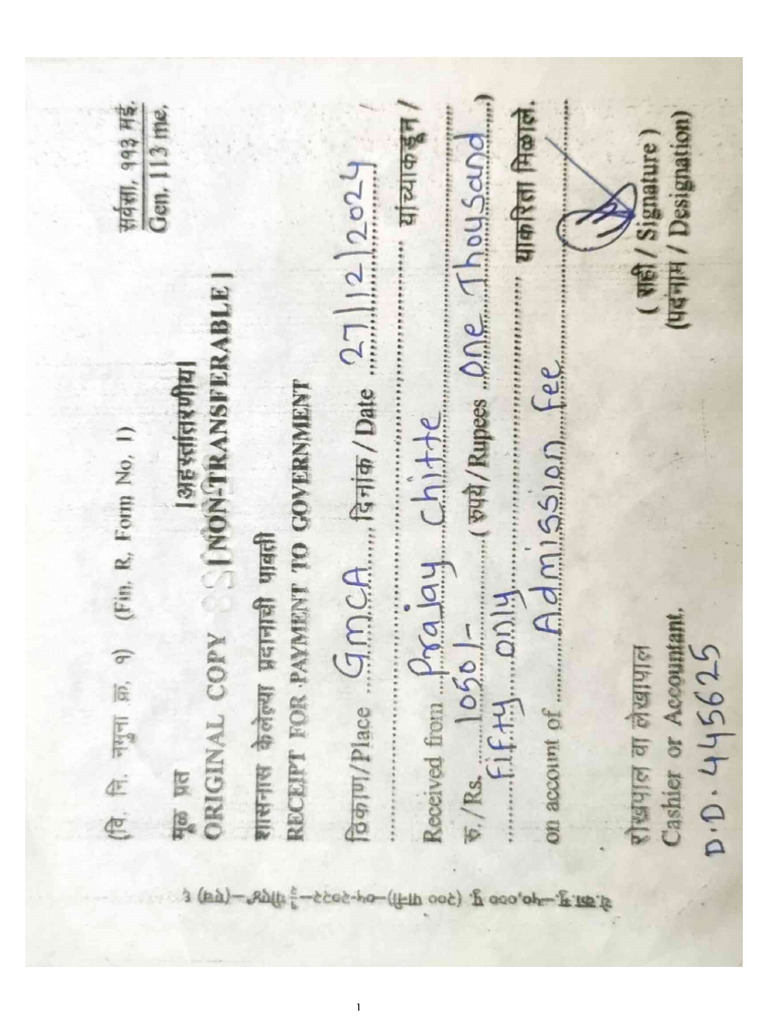 सर्वसा, ११३ मई.
Gen, 113 me,
(वि, नि. नमुना क्र, १) (Fin, R, Form No, 1)
मूळ प्रत [अहस्तांतरणीय]
ORIGINAL COPY [NON-TRANSFERABLE]
शासनास केलेल्या प्रदानाची पावती
RECEIPT FOR PAYMENT TO GOVERNMENT
ठिकाण/Place GMCA दिनांक/Date 27/12/2024
यांच्याकडून /
Received from Prajay Chitte
रु./Rs. 1050/- (रुपये/Rupees One Thousand)
Fifty only याकरिता मिळाले.
on account of Admission Fee
( सही / Signature )
रोखपाल वा लेखापाल (पदनाम / Designation)
Cashier or Accountant,
D.D. 445625
१